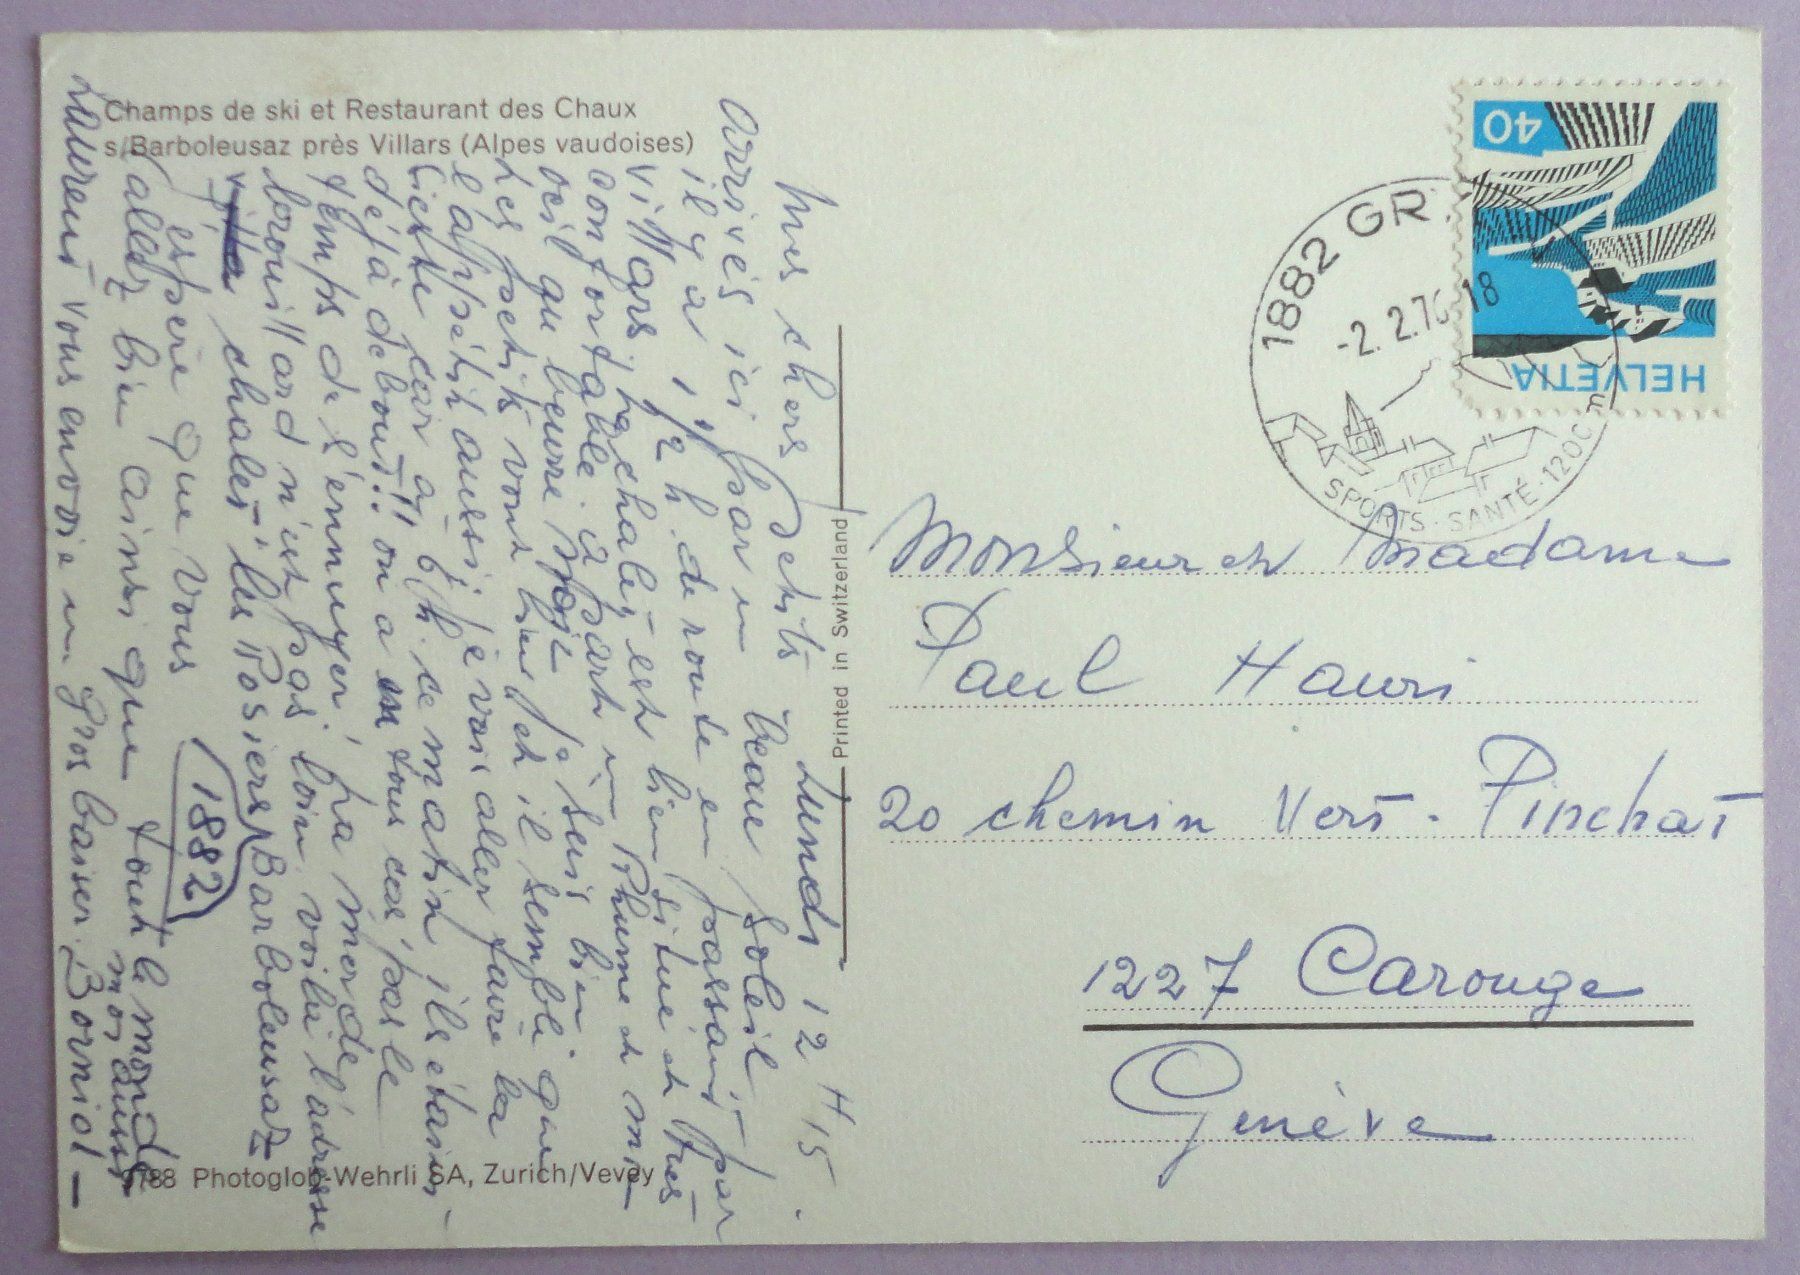 Champs de ski et Restaurant des Chaux
s/Barboleusaz près Villars (Alpes vaudoises)
Lundi 12 H 15.
Mes chers Petits
Arrivés ici par un beau soleil
il y a 1 1/2 h. de route en passant par
Villars, le chalet est bien situé et très
confortable. à part un Rhume et mon
oeil au beurre noir je suis bien
Les petits vont bien et il semble que
l'appétit aussi, je vais aller faire la
sieste car à 6 h. ce matin ils étaient
déjà debout!! on a en tous cas pas le
temps de s'ennuyer, la merde
brouillard n'est pas loin. voilà l'adresse
chalet les Rosiers, Barboleusaz
1882
J'espère que vous
allez bien ainsi que tout le monde
Laurent vous envoie un gros baiser. moi aussi
Borniol -
9788 Photoglob-Wehrli SA, Zurich/Vevey
Printed in Switzerland
HELVETIA
40
1882 GR
-2.2.76 18
SPORTS · SANTÉ · 1200 m
Monsieur et Madame
Paul Hauri
20 chemin Vert - Pinchat
1227 Carouge
Genève